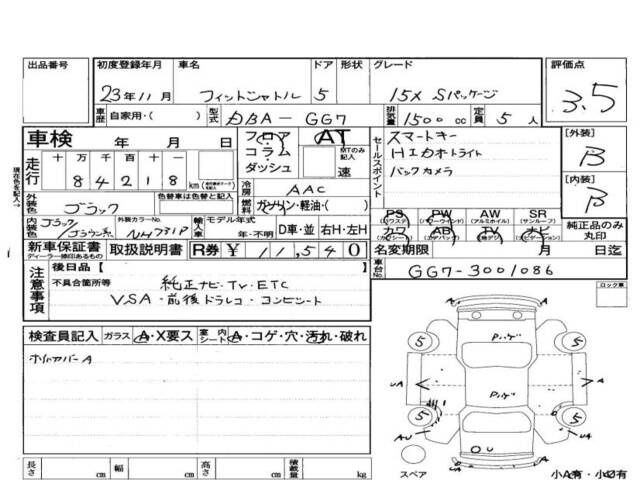 出品番号 初度登録年月 車名 ドア 形状 グレード 評価点
23年11月 フィットシャトル 5 15X Sパッケージ 3.5
車歴 自家用・( ) 型式 DBA-GG7 排気量 1500cc 定員 5人
車検 年 月 日 フロア コラム ダッシュ AT 速
セールスポイント スマートキー
HIDオートライト
バックカメラ
[外装] B
[内装] B
走行 十 万 千 百 十 一
84218 km
冷房 AAC
外装色 ブラック 色替車は色替と記入 燃料 ガソリン・軽油・( )
内装色 ブラック/ 外装カラーNo. NH731P 輸入車 モデル年式 年・不明 D車・並 右H・左H
PS PW AW SR
(パワステ) (パワーウインド) (アルミホイル) (サンルーフ)
カワ AB TV ナビ
(エアバッグ) 純正品のみ丸印
新車保証書 取扱説明書 R券 ¥ 11,540 名変期限 月 日迄
ディーラー捺印あるもの
車台No. GG7-3001086
注意事項 後日品[ ]
不具合箇所等 純正ナビ・TV・ETC
VSA・前後ドラレコ・コンビシート
ロック車
検査員記入 ガラス A・X要ス 室内シート A・コゲ・穴・汚れ・破れ
ホイルカバーA
5 5
A
UA A
5 5
AU A
スペア
長さ cm 幅 cm 高さ cm 積載量 kg
小A有・小U有